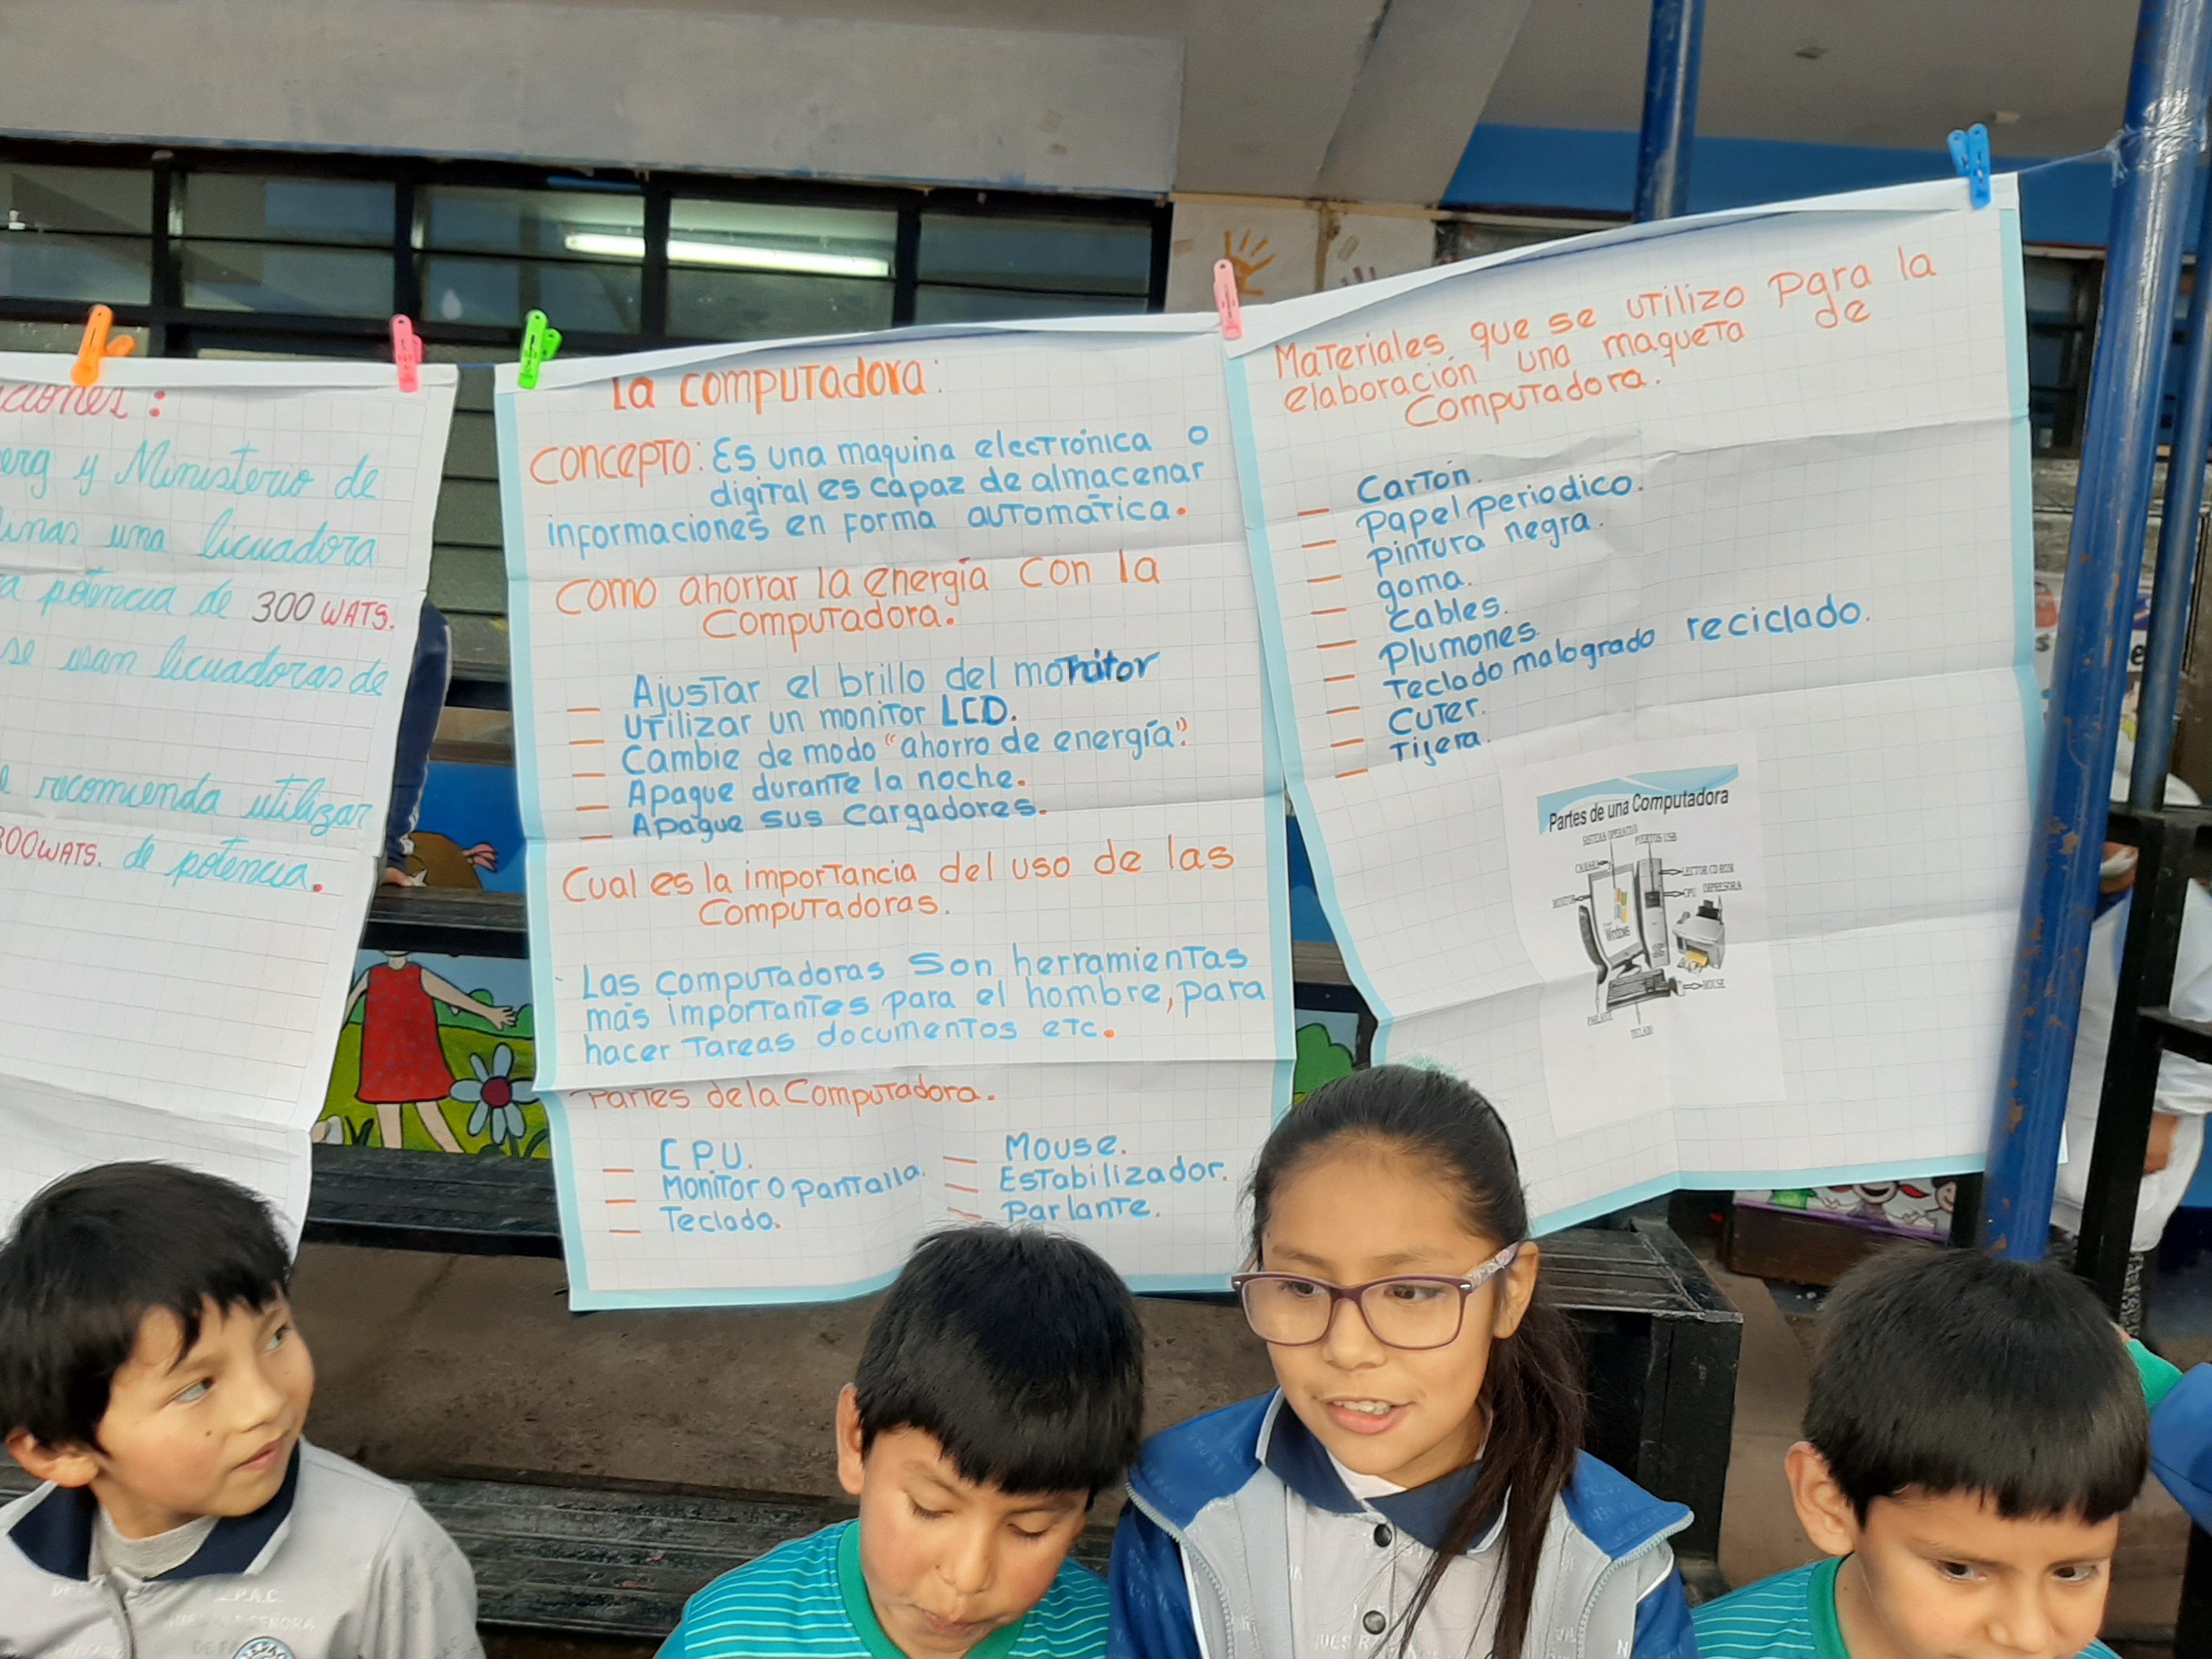 ciones:
erg y Ministerio de
una licuadora
a potencia de 300 WATS.
se usan licuadoras de
recomienda utilizar
300WATS. de potencia.
La computadora:
concepto: Es una maquina electrónica o
digital es capaz de almacenar
informaciones en forma automática.
Como ahorrar la energía con la
Computadora.
— Ajustar el brillo del monitor
— utilizar un monitor LCD.
— Cambie de modo "ahorro de energía".
— Apague durante la noche.
— Apague sus cargadores.
Cual es la importancia del uso de las
Computadoras.
Las computadoras son herramientas
más importantes para el hombre, para
hacer tareas documentos etc.
Partes de la Computadora.
— C.P.U.
— Monitor o pantalla.
— Teclado.
— Mouse.
— Estabilizador.
— Parlante.
Materiales que se utilizo para la
elaboración una maqueta de
Computadora.
— Cartón.
— Papel periodico.
— pintura negra.
— goma.
— Cables.
— Plumones.
— Teclado malogrado reciclado.
— Cuter.
— Tijera.
Partes de una Computadora
SISTEMA OPERATIVO
PUERTOS USB
CAMARA
LECTOR CD-ROM
MONITOR
CPU
Windows
MOUSE
PARLANTE
TECLADO